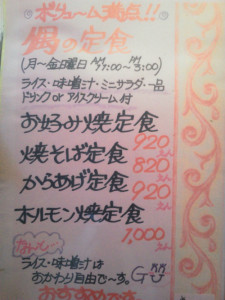 ボリューム満点!!
偶の定食
(月〜金曜日 AM11:00〜PM3:00)
ライス・味噌汁・ミニサラダ・一品
ドリンク or アイスクリーム付
お好み焼定食 920
焼そば定食 820
からあげ定食 920
ホルモン焼定食
1,000
ライス・味噌汁は
おかわり自由で〜す。
おすすめです